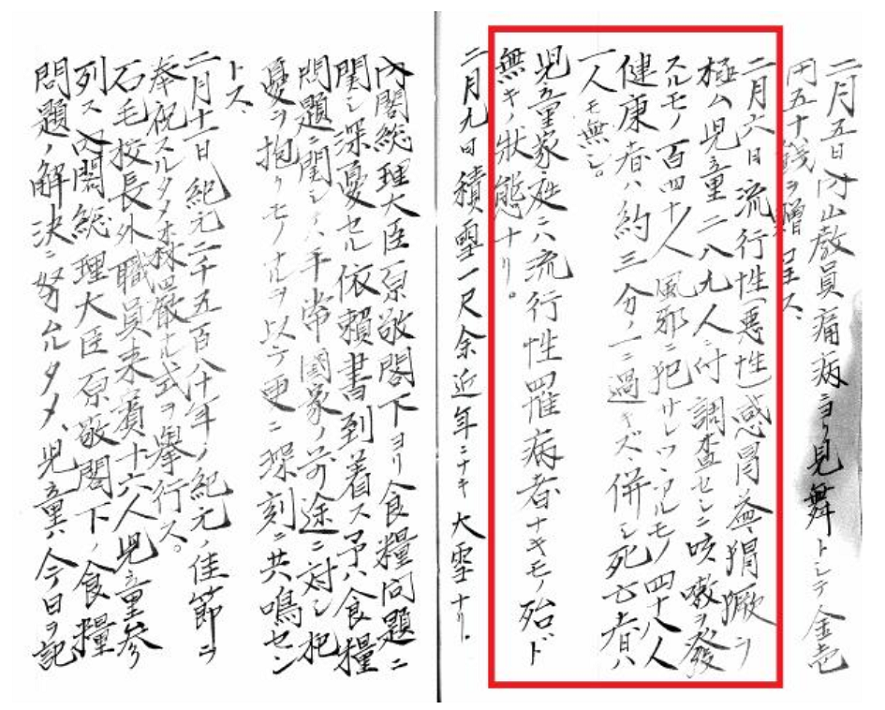 二月五日内山教員痛病ニヨリ見舞トシテ金壱
円五十銭ヲ贈呈ス、
二月六日流行性(悪性)感冒益〻猖獗ヲ
極ム児童二八九人ニ付調査セシニ咳嗽ヲ發
スルモノ百四十人風邪ニ犯サレツヽアルモノ四十八人
健康者ハ約三分ノ一ニ過ギズ、併シ死亡者ハ
一人モ無シ。
児童家庭ニハ流行性罹病者ナキモノ殆ド
無キノ狀態ナリ。
二月九日積雪一尺余近年ニナキ大雪ナリ。
内閣総理大臣原敬閣下ヨリ食糧問題ニ
関シ深憂セル依賴書到着ス予ハ食糧
問題ニ関シテハ平常國家ノ前途ニ対シ杞
憂ヲ抱クモノナルヲ以テ更ニ深刻ニ共鳴セン
トス、
二月十一日紀元二千五百八十年ノ紀元ノ佳節ヲ
奉祝スルタメ森嚴ナル式ヲ擧行ス。
石毛校長外職員来賓十六人児童参
列ス内閣総理大臣原敬閣下ノ食糧
問題ノ解決ニ努ムルタメ、児童ハ今日ヲ記